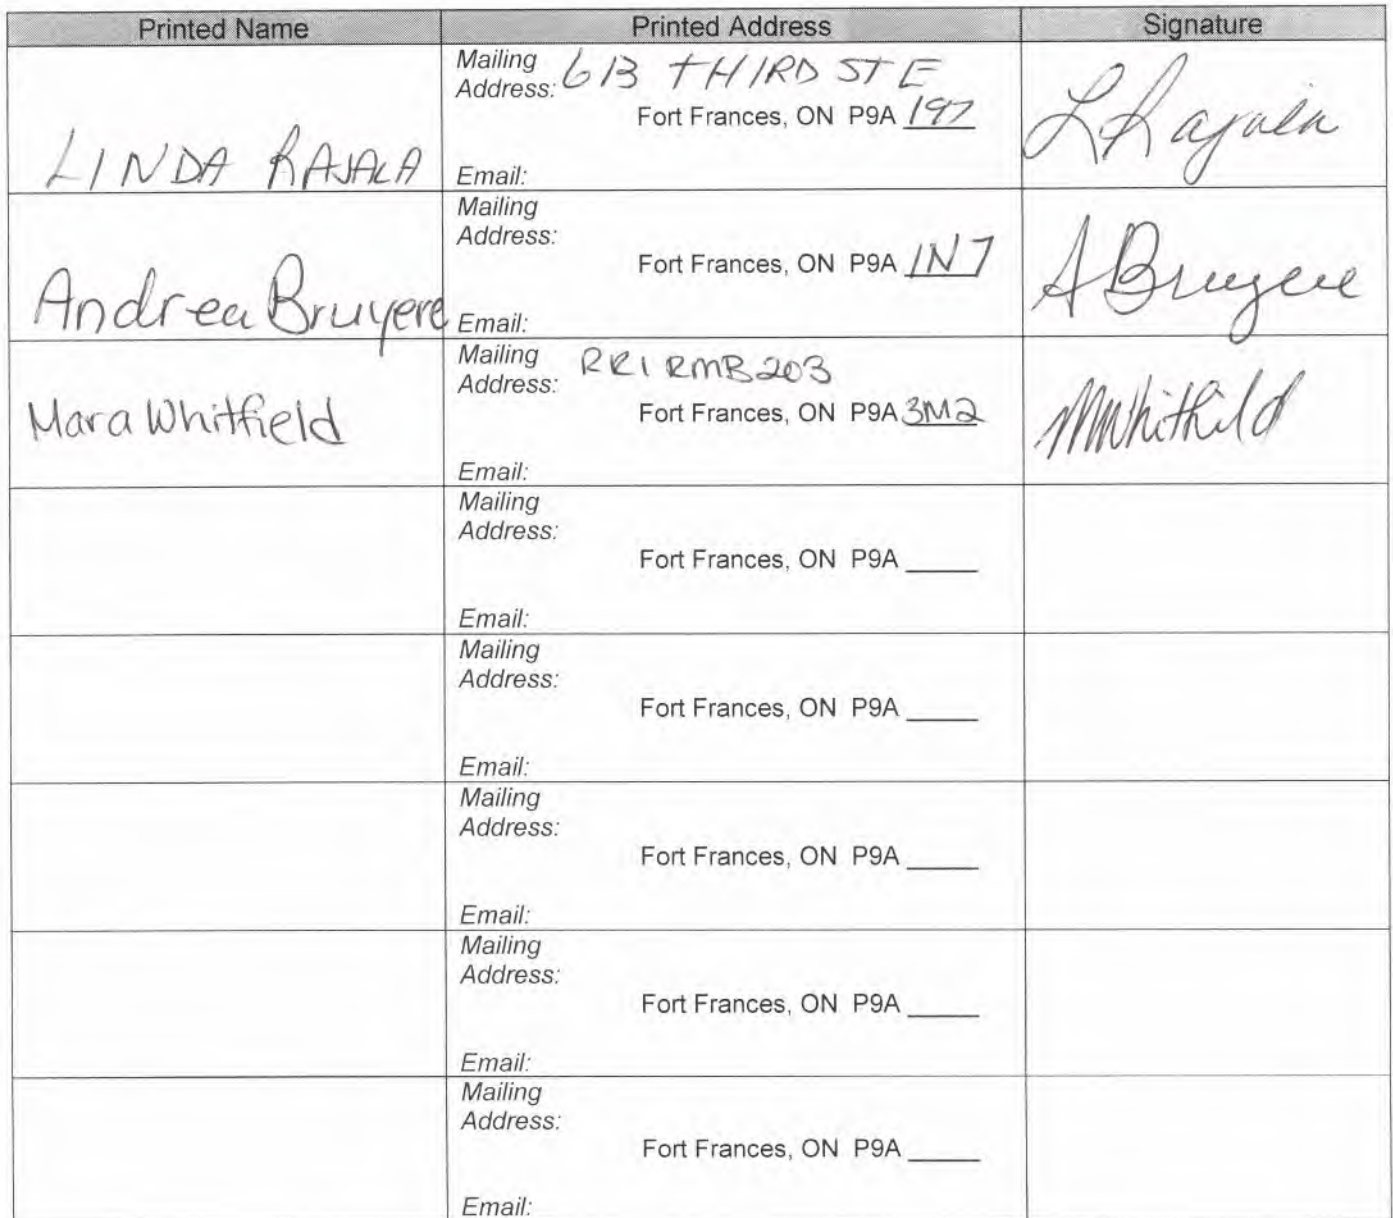 Printed Name Printed Address Signature
Mailing
Address: 613 THIRD ST E
Fort Frances, ON P9A 197
LINDA RAJALA
Email:
L Rajala
Mailing
Address:
Fort Frances, ON P9A 1N7
Andrea Bruyere
Email:
A Bruyere
Mailing
Address: RR1 RMB203
Fort Frances, ON P9A 3M2
Mara Whitfield
Email:
MWhitfield
Mailing
Address:
Fort Frances, ON P9A _____
Email:
Mailing
Address:
Fort Frances, ON P9A _____
Email:
Mailing
Address:
Fort Frances, ON P9A _____
Email:
Mailing
Address:
Fort Frances, ON P9A _____
Email:
Mailing
Address:
Fort Frances, ON P9A _____
Email: